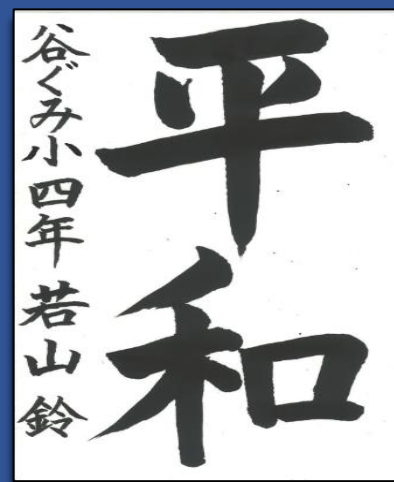 平和
谷ぐみ小四年 若山 鈴